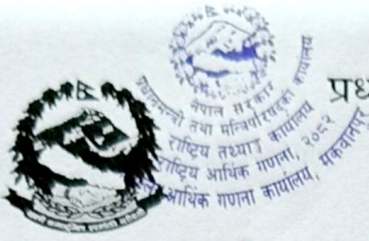 नेपाल सरकार
प्रधानमन्त्री तथा मन्त्रिपरिषद्को कार्यालय
राष्ट्रिय तथ्याङ्क कार्यालय
राष्ट्रिय आर्थिक गणना, २०८२
आर्थिक गणना कार्यालय, मकवानपुर
प्रध